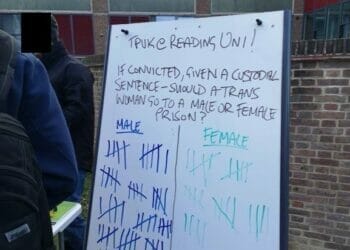 TPUK @ READING UNI!
IF CONVICTED, GIVEN A CUSTODIAL
SENTENCE - SHOULD A TRANS
WOMAN GO TO A MALE OR FEMALE
PRISON?
MALE FEMALE